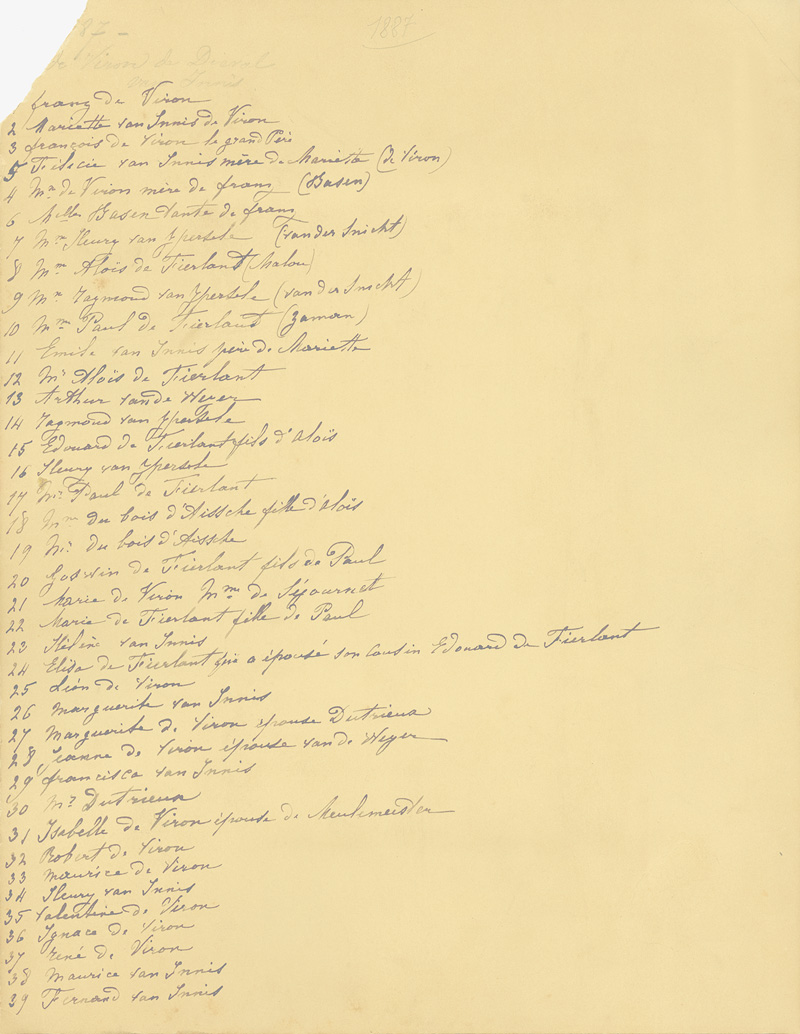 1887
87 -
de Viron de Dieval
van Innis
franz de Viron
2 Mariette van Innis de Viron
3 françois de Viron le grand Père
5 Félicie van Innis mère de Mariette (de Viron)
4 Me de Viron mère de franz (Basen)
6 Melles Basen tante de franz
7 Mme Henry van Ypersele (van der Snicht)
8 Mme Aloïs de Fierlant (Malou)
9 Me Raymond van Ypersele (van der Snicht)
10 Mme Paul de Fierlant (Zaman)
11 Emile van Innis père de Mariette
12 Mr Aloïs de Fierlant
13 Arthur vande Weyer
14 Raymond van Ypersele
15 Edouard de Fierlant fils d'Aloïs
16 Henry van Ypersele
17 Mr Paul de Fierlant
18 Mme du bois d'Aissche fille d'Aloïs
19 Mr du bois d'Aissche
20 Goswin de Fierlant fils de Paul
21 Marie de Viron Mme de Séjournet
22 Marie de Fierlant fille de Paul
23 Hélène van Innis
24 Elisa de Fierlant qui a épousé son cousin Edouard de Fierlant
25 Léon de Viron
26 Marguerite van Innis
27 Marguerite de Viron épouse Dutrieux
28 Jeanne de Viron épouse vande Weyer
29 francisca van Innis
30 Mr Dutrieux
31 Isabelle de Viron épouse de Meulemeister
32 Robert de Viron
33 maurice de Viron
34 Henry van Innis
35 Valentine de Viron
36 Ignace de Viron
37 René de Viron
38 Maurice van Innis
39 Fernand van Innis